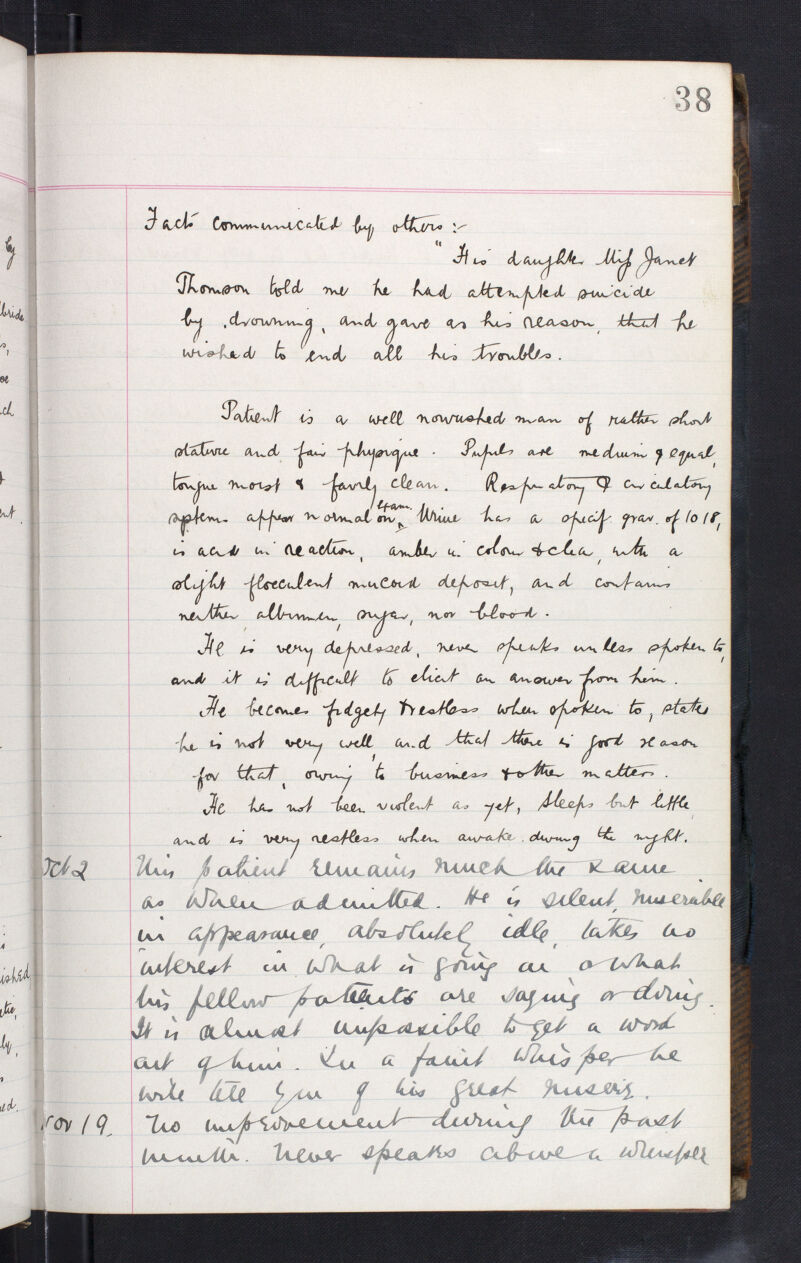 38
Facts communicated by others :-
"His daughter Miss Janet
Thomson told me he had attempted suicide
by drowning, and gave as his reason, that he
wished to end all his troubles.
Patient is a well nourished man of rather short
stature and fair physique. Pupils are medium & equal,
tongue moist & fairly clean. Respiratory & circulatory
systems appear normal on exam. Urine has a specif. grav. of 1018,
is acid in reaction, amber in colour & clear, with a
slight flocculent mucoid deposit, and contains
neither albumen, sugar, nor blood.
He is very depressed, never speaks unless spoken to,
and it is difficult to elicit an answer from him.
He becomes fidgety & restless when spoken to, states
he is not very well, and that there is good reason
for that, owing to business & other matters.
He has not been violent as yet, sleeps but little,
and is very restless when awake during the night.
Oct 2 This patient remains much the same
as when admitted. He is silent, miserable
in appearance, absolutely idle, takes no
interest in what is going on or what
his fellow patients are saying or doing.
It is almost impossible to get a word
out of him. In a faint whisper he
will tell you of his great misery.
Nov 19. No improvement during the past
month. Never speaks above a whisper